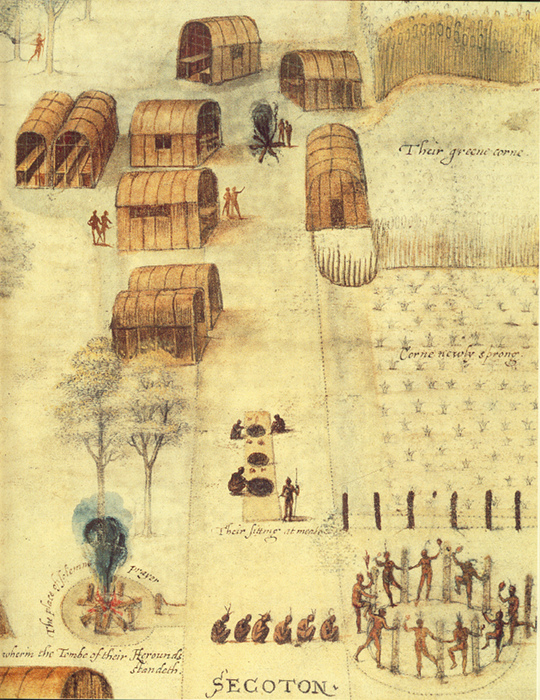 Their greene corne.
Corne newly sprong.
Their sitting at meate
The place of solemne prayer
wherin the Tombe of their Herounds
standeth.
SECOTON.